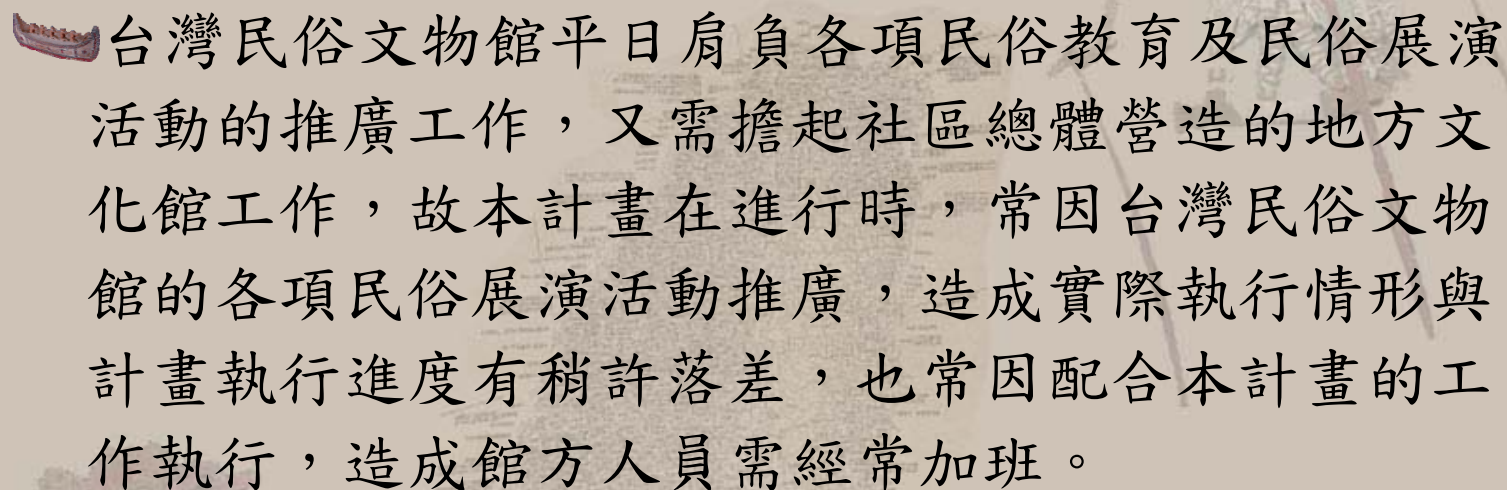 台灣民俗文物館平日肩負各項民俗教育及民俗展演
活動的推廣工作，又需擔起社區總體營造的地方文
化館工作，故本計畫在進行時，常因台灣民俗文物
館的各項民俗展演活動推廣，造成實際執行情形與
計畫執行進度有稍許落差，也常因配合本計畫的工
作執行，造成館方人員需經常加班。